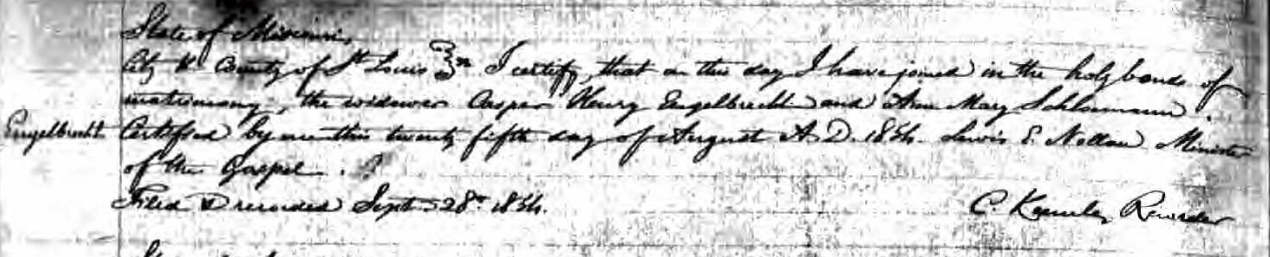 State of Missouri,
City & County of St Louis I certify, that on this day I have joined in the holy bonds of
matrimony, the widower Casper Henry Engelbrecht and Ann Mary Schloemann.
Engelbrecht Certified by me this twenty fifth day of August A.D. 1854. Lewis E. Nollau Minister
of the Gospel.
Filed & recorded Sept 28th 1854. C. Keemle, Recorder